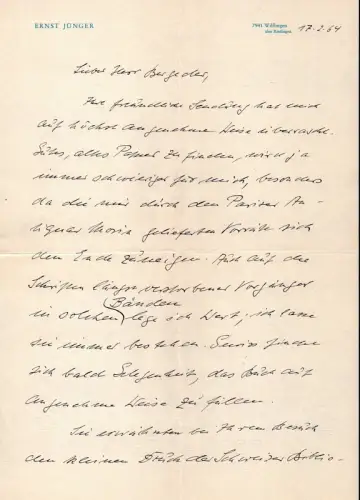 ERNST JÜNGER
7941 Wilflingen
über Riedlingen
17.2.64
Lieber Herr Bergeder,
Ihre freundliche Sendung hat mich
auf höchst angenehme Weise überrascht.
Gutes, altes Papier zu finden, wird ja
immer schwieriger für mich, besonders
da die mir durch den Pariser An-
tiquar Morin gelieferten Vorräte sich
dem Ende zuneigen. Auch auf die
Schriften längst verstorbener Vorgänger
in solchen Bänden lege ich Wert; ich lasse
sie immer bestehen. Gewiss finde
sich bald Gelegenheit, das Buch auf
angenehme Weise zu füllen.
Sie erwähnten bei Ihrem Besuch
den kleinen Druck der Schweizer Biblio-